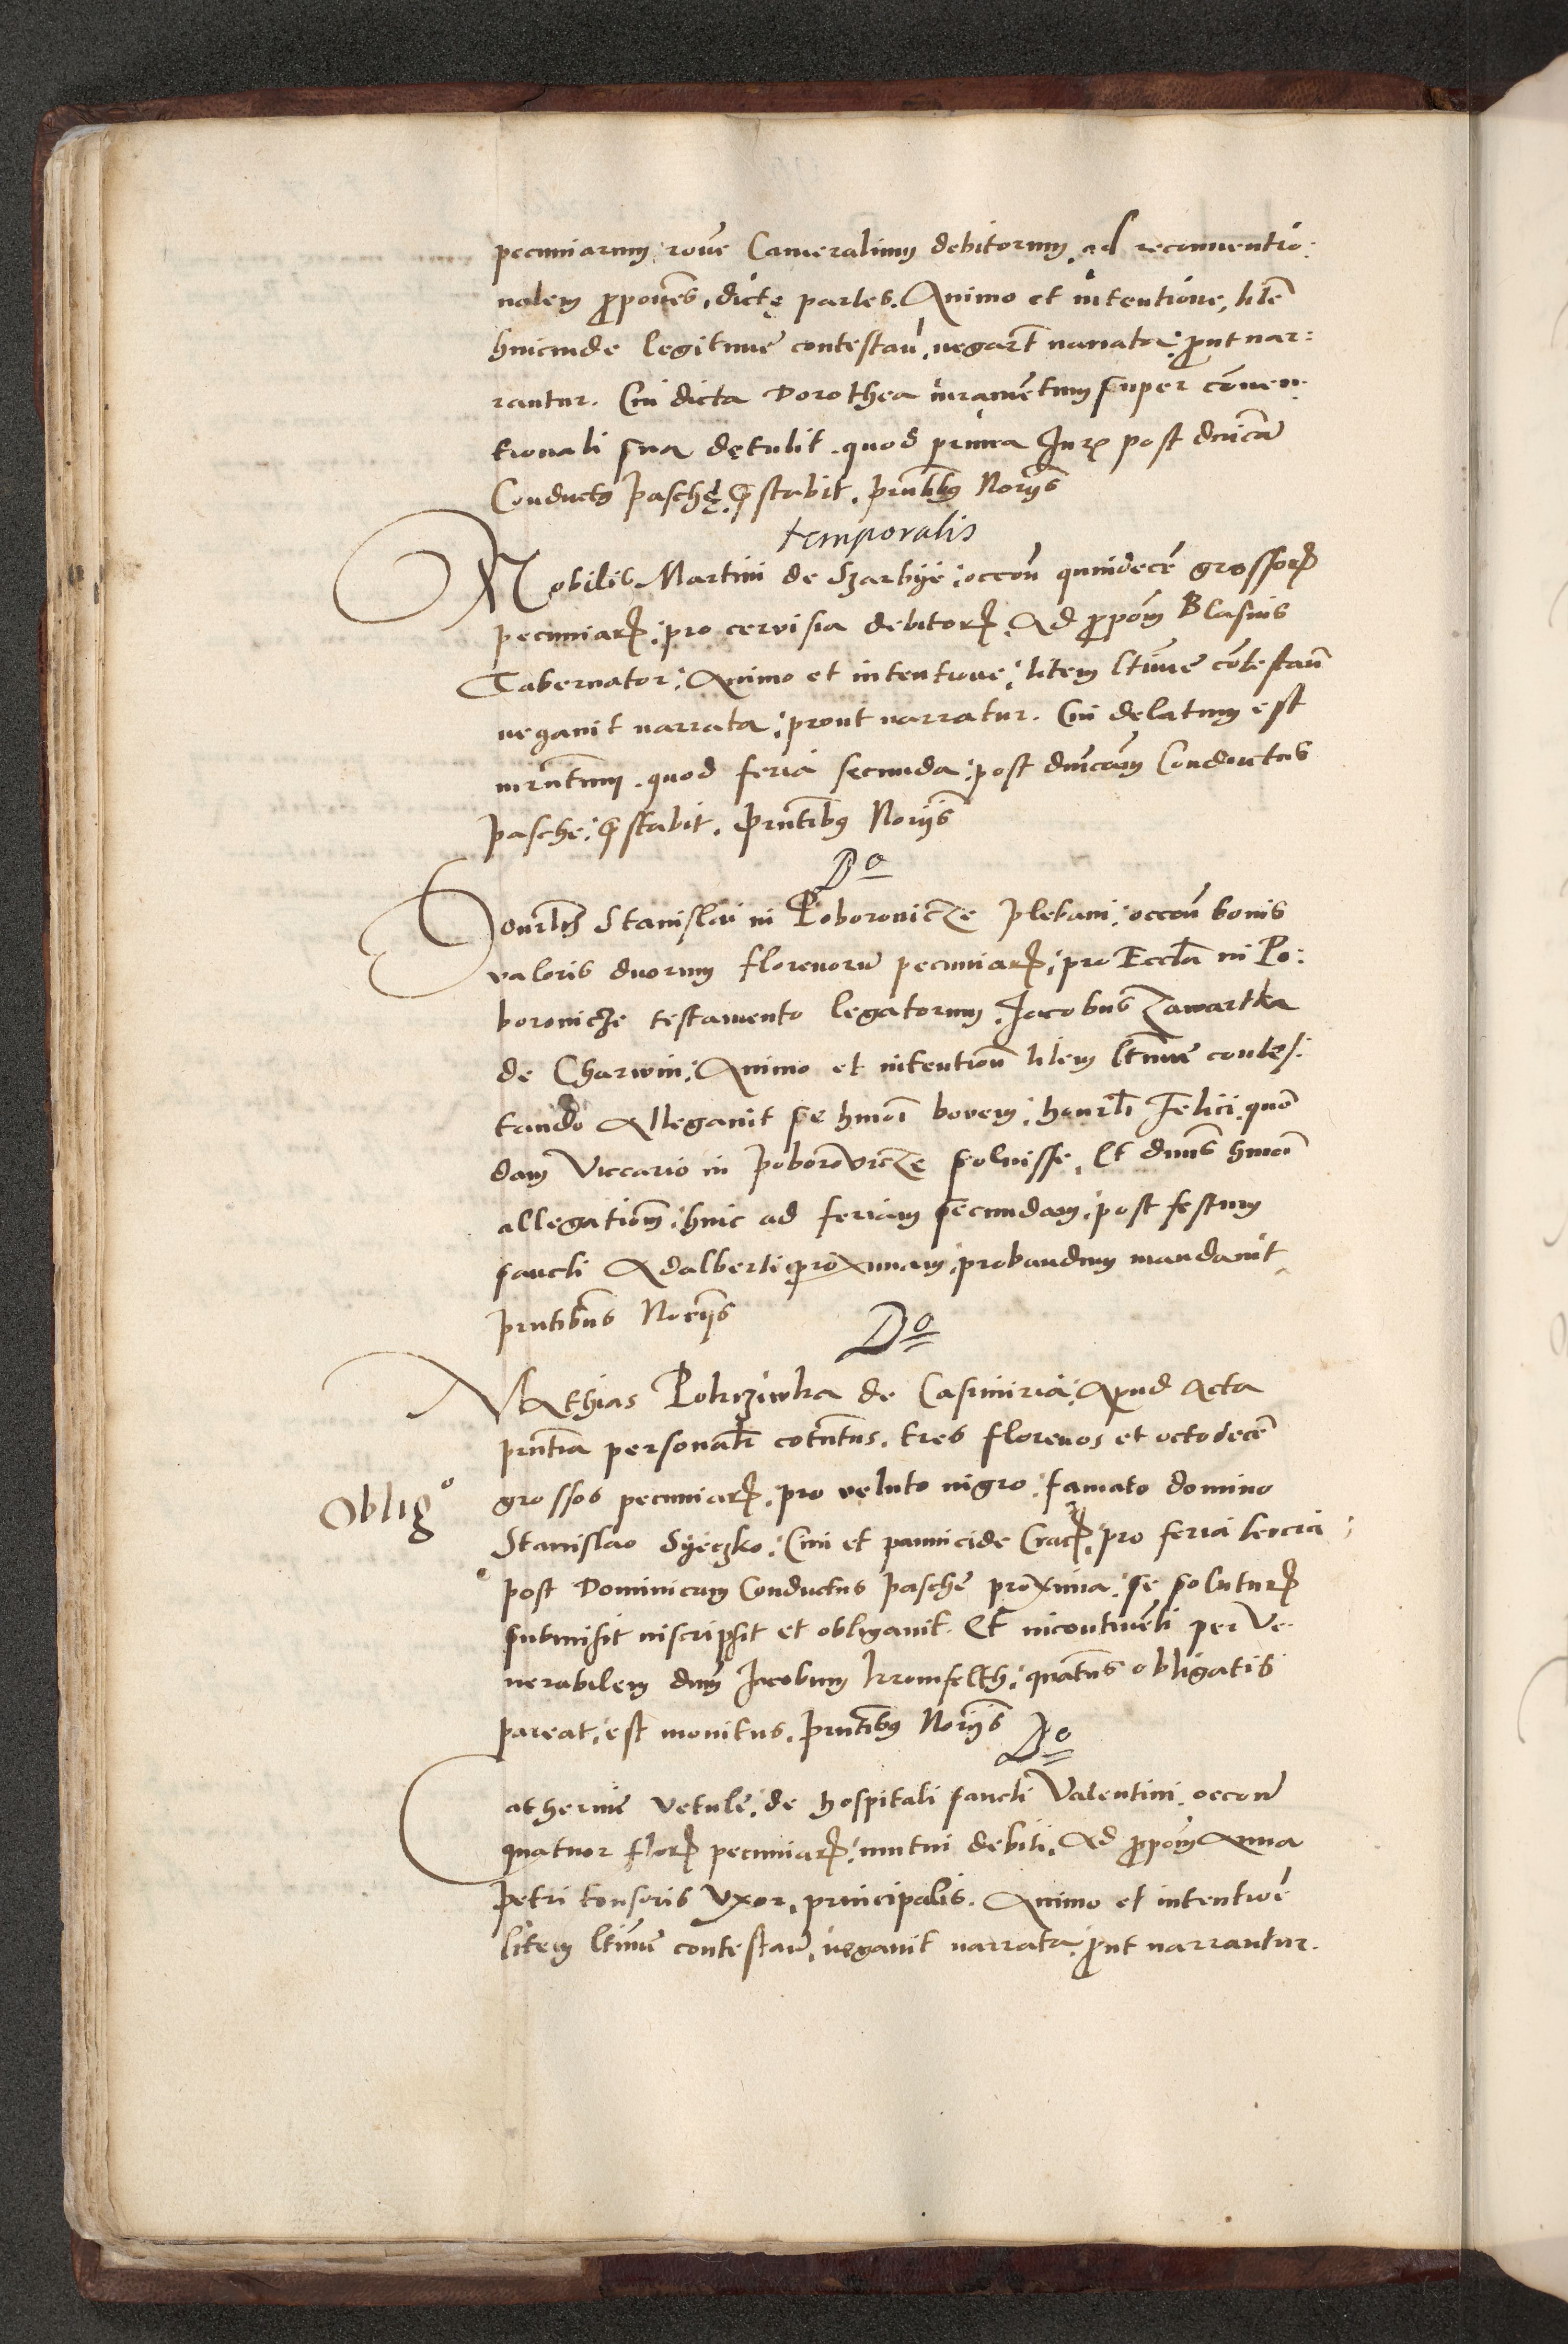 pecuniarum rone Cameralium debitorum, ad reconuentio:
nalem ꝓpones, dictę partes. Animo et intentione, lite
hincinde legitime contestan, negart narrata: ꝓut nar:
rantur. Cui dicta Dorothea iuramentum super conuen:
tionali sua detulit. quod prima Iurꝭ post dnica
Conductꝰ paschę pstabit. pntibꝰ Noriis
temporalis
Nobilis Martini de Szarbye: occon quindece grossorꝝ
pecuniarꝝ: pro ceruisia debitorꝝ. Ad ꝓpom Blasius
Tabernator: Animo et intentione: litem ltime cotestan
negauit narrata: prout narratur. Cui delatum est
iurntum. quod feria secunda: post dnicam Conductus
pasche: pstabit. Prntibꝰ Noriis
Do
Honrlis Stanislai in Poborouicze plebani: occon bouis
valoris duorum florenoru pecuniarꝝ: pro Eccla in Po:
borouicze testamento legatorum. Jacobus Zawartka
de Charwin: Animo et intention litem ltime contes:
tando Allegauit se hmoi bouem: honrli Felici quon
dam Viccario in poborouicze soluisse. Et dnus hmoi
allegationem: huic ad feriam secundam: post festum
sancti Adalberti proximam: probandum mandauit
pntibus Noriis
Do
Mathias Pokrziwka de Casimiria: Apud Acta
pntia personalr cotntus. tres florenos et octodece
grossos pecuniarꝝ, pro veluto nigro: famato domino
Obligo
Stanislao Syeczko: Ciui et pannicide Cracꝝ: pro feria tercia
post Dominicam Conductus pasche proxima: se soluturꝝ
submisit inscripsit et obligauit. Et incontinenti per Ve-
nerabilem dnm Jacobum Kromfelth: quatnus obligatis
pareat, est monitus. pntibꝰ Noriis
Do
Catherine vetule: de hospitali sancti Valentini. occone
quatuor florꝝ pecuniarꝝ: mutui debiti. Ad ꝓpom Anna
petri tonsoris Vxor, principalis. Animo et intentioe
litem ltime contestan, negauit narrata: ꝓut narrantur.